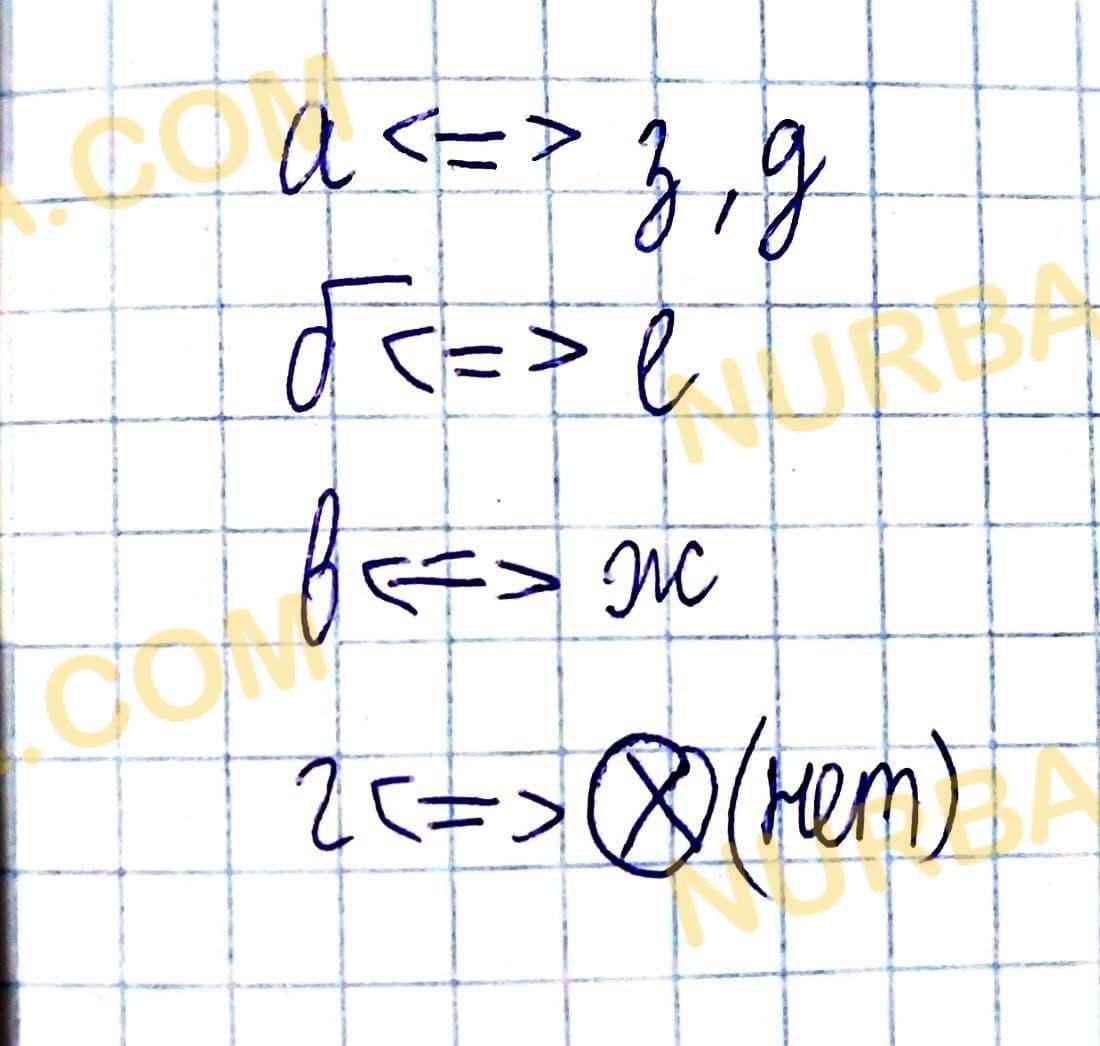 а <=> з, д
б <=> е
в <=> ж
г <=> ⊗ (нет)
A.COM
NURBA
.COM
NURBA